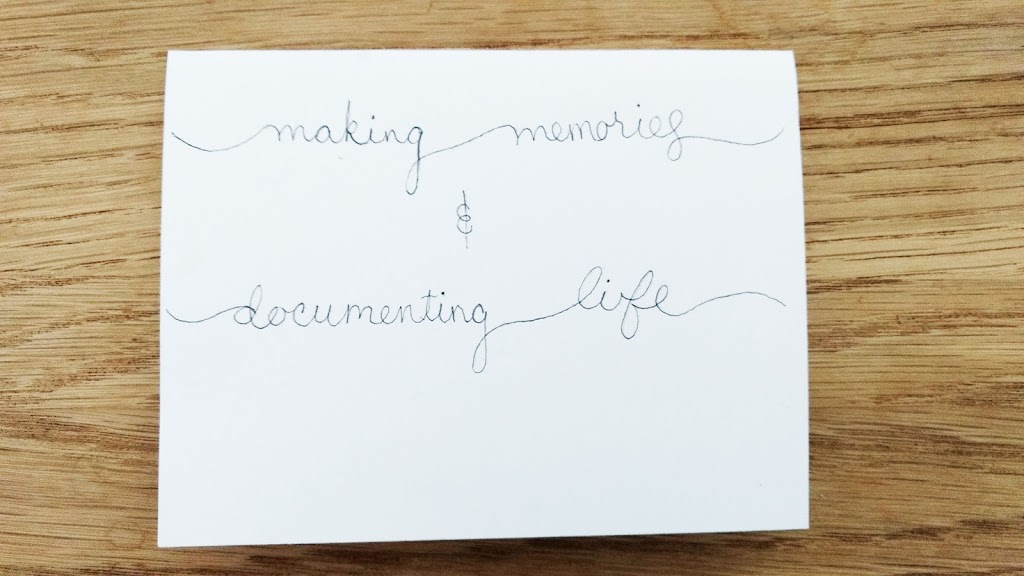 making memories
&
documenting life